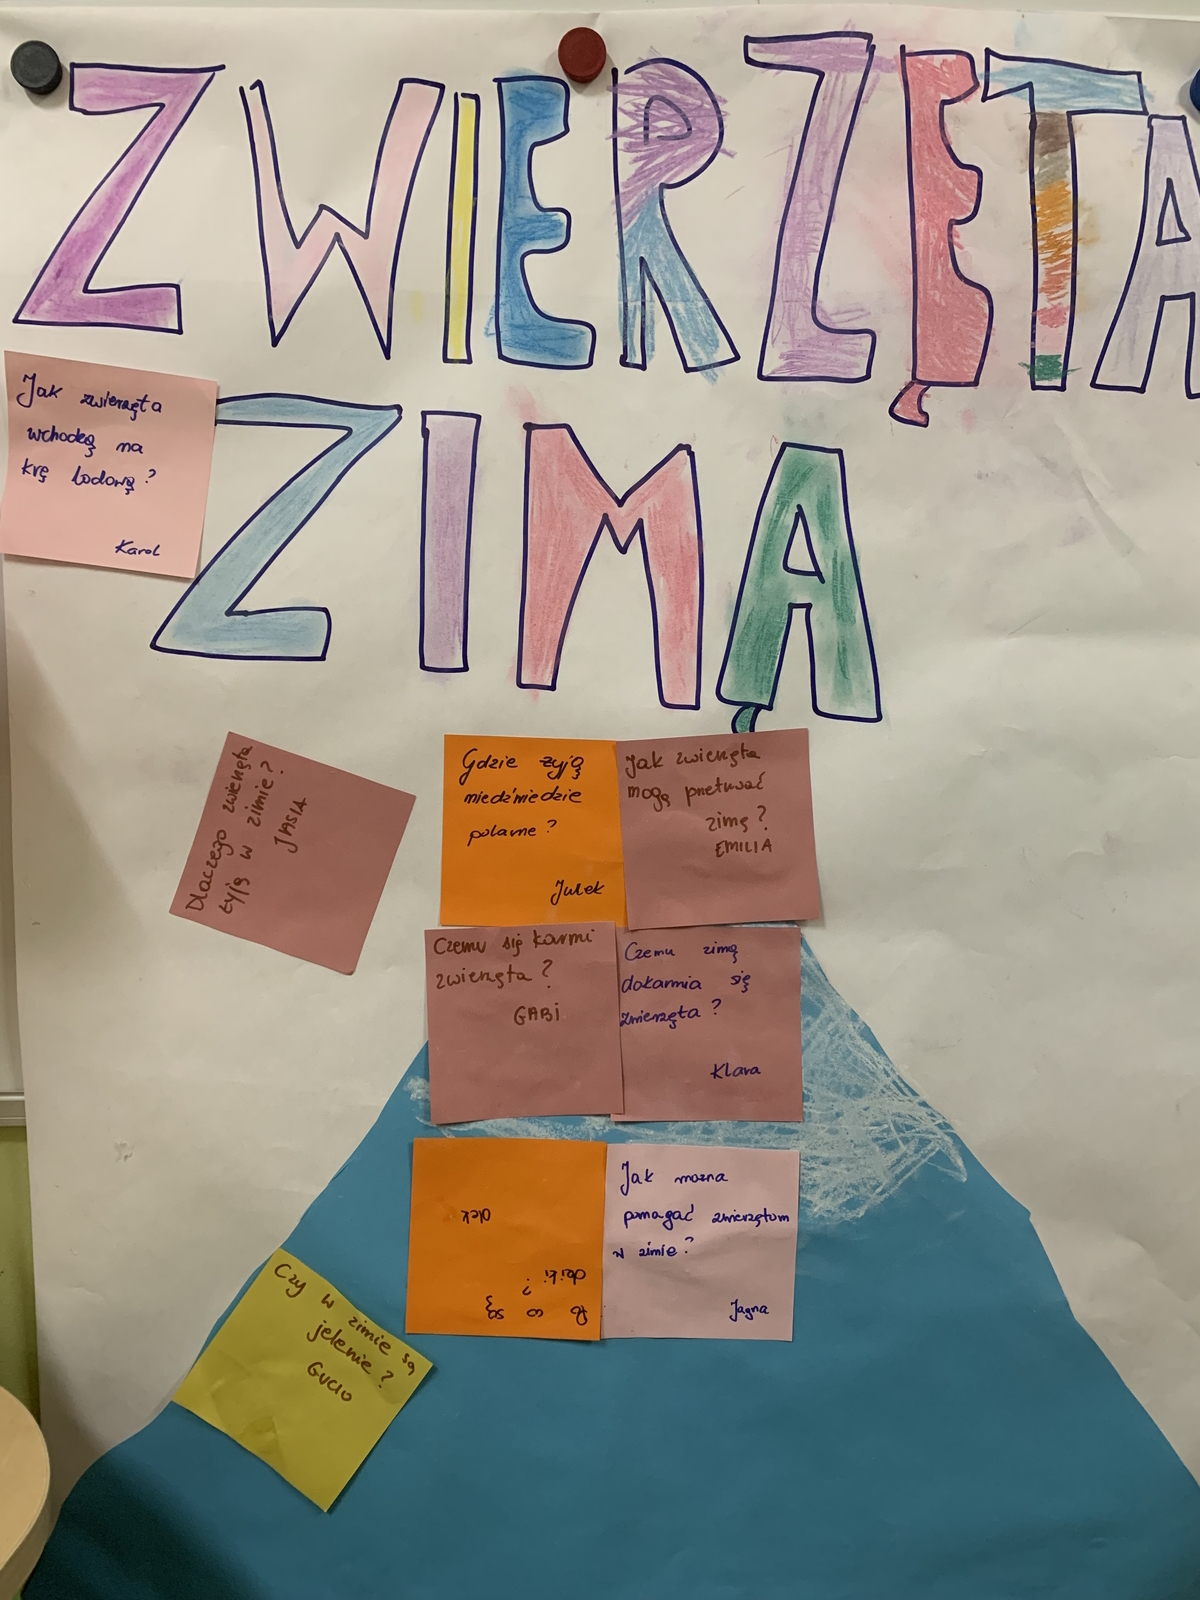 ZWIERZĘTA
ZIMĄ
Jak zwierzęta
wchodzą na
krę lodową?
Karol
Dlaczego zwierzęta
żyją w zimie?
JASIA
Gdzie żyją
niedźwiedzie
polarne?
Julek
Jak zwierzęta
mogą przetrwać
zimę?
EMILIA
Czemu się karmi
zwierzęta?
GABI
Czemu zimą
dokarmia się
zwierzęta?
Klara
Po co są
dziki?
Olek
Jak można
pomagać zwierzętom
w zimie?
Jagna
Czy w zimie są
jelenie?
GUCIO